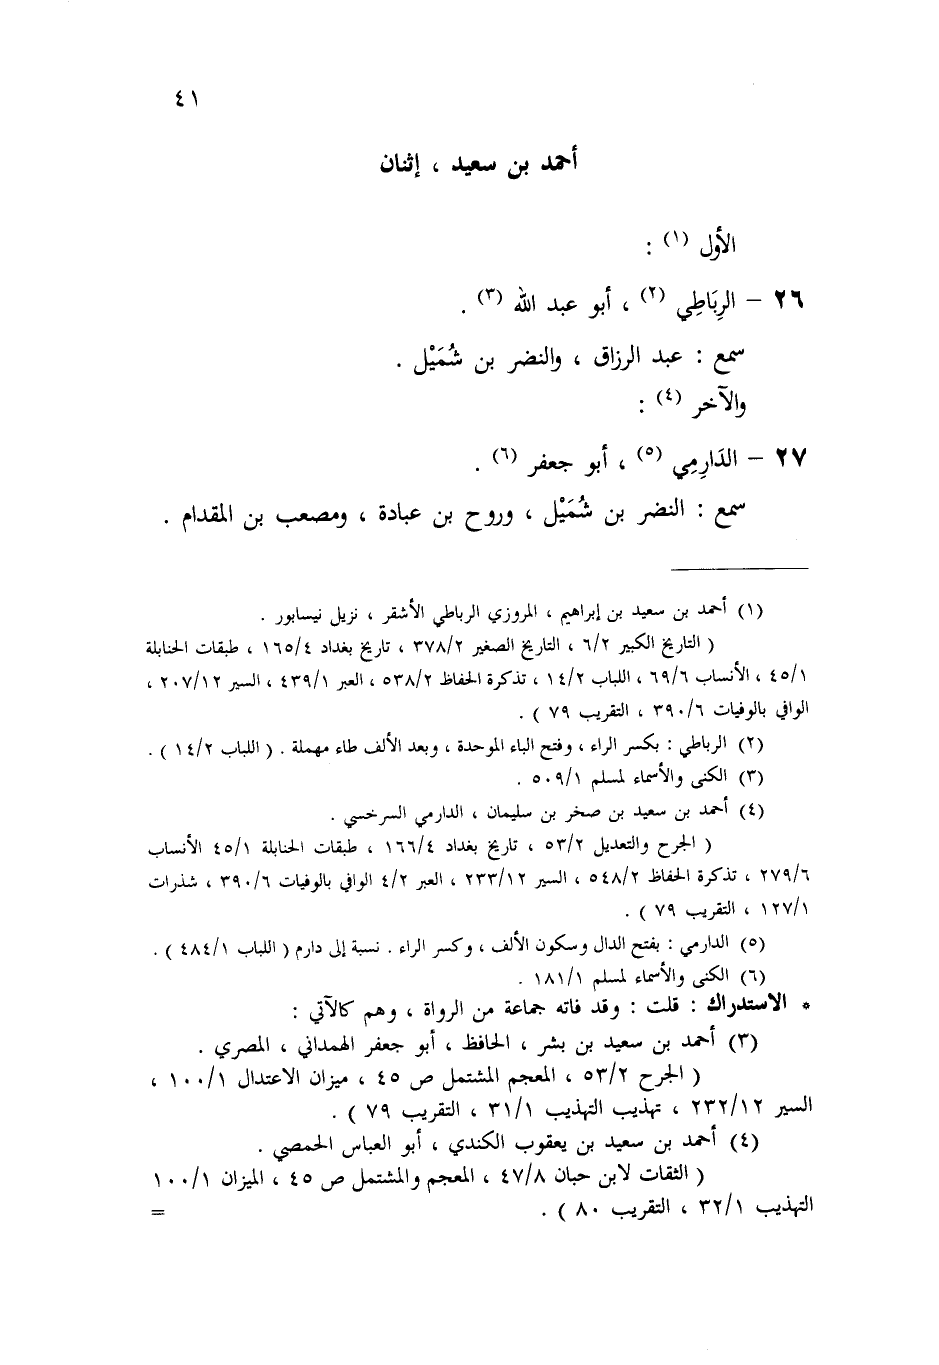 ٤١
أحمد بن سعيد ، إثنان
الأول (١) :
٢٦ – الرِبَاطِي (٢) ، أبو عبد الله (٣) .
سمع : عبد الرزاق ، والنضر بن شُمَيْل .
والآخر (٤) :
٢٧ – الدَارِمِي (٥) ، أبو جعفر (٦) .
سمع : النضر بن شُمَيْل ، وروح بن عبادة ، ومصعب بن المقدام .
(١) أحمد بن سعيد بن إبراهيم ، المروزي الرباطي الأشقر ، نزيل نيسابور .
( التاريخ الكبير ٦/٢ ، التاريخ الصغير ٣٧٨/٢ ، تاريخ بغداد ١٦٥/٤ ، طبقات الحنابلة
٤٥/١ ، الأنساب ٦٩/٦ ، اللباب ١٤/٢ ، تذكرة الحفاظ ٥٣٨/٢ ، العبر ٤٣٩/١ ، السير ٢٠٧/١٢ ،
الوافي بالوفيات ٣٩٠/٦ ، التقريب ٧٩ ) .
(٢) الرباطي : بكسر الراء ، وفتح الباء الموحدة ، وبعد الألف طاء مهملة . ( اللباب ١٤/٢ ) .
(٣) الكنى والأسماء لمسلم ٥٠٩/١ .
(٤) أحمد بن سعيد بن صخر بن سليمان ، الدارمي السرخسي .
( الجرح والتعديل ٥٣/٢ ، تاريخ بغداد ١٦٦/٤ ، طبقات الحنابلة ٤٥/١ الأنساب
٢٧٩/٦ ، تذكرة الحفاظ ٥٤٨/٢ ، السير ٢٣٣/١٢ ، العبر ٤/٢ الوافي بالوفيات ٣٩٠/٦ ، شذرات
١٢٧/١ ، التقريب ٧٩ ) .
(٥) الدارمي : بفتح الدال وسكون الألف ، وكسر الراء . نسبة إلى دارم ( اللباب ٤٨٤/١ ) .
(٦) الكنى والأسماء لمسلم ١٨١/١ .
* الاستدراك : قلت : وقد فاته جماعة من الرواة ، وهم كالآتي :
(٣) أحمد بن سعيد بن بشر ، الحافظ ، أبو جعفر الهمداني ، المصري .
( الجرح ٥٣/٢ ، المعجم المشتمل ص ٤٥ ، ميزان الاعتدال ١٠٠/١ ،
السير ٢٣٢/١٢ ، تهذيب التهذيب ٣١/١ ، التقريب ٧٩ ) .
(٤) أحمد بن سعيد بن يعقوب الكندي ، أبو العباس الحمصي .
( الثقات لابن حبان ٤٧/٨ ، المعجم والمشتمل ص ٤٥ ، الميزان ١٠٠/١
التهذيب ٣٢/١ ، التقريب ٨٠ ) . =